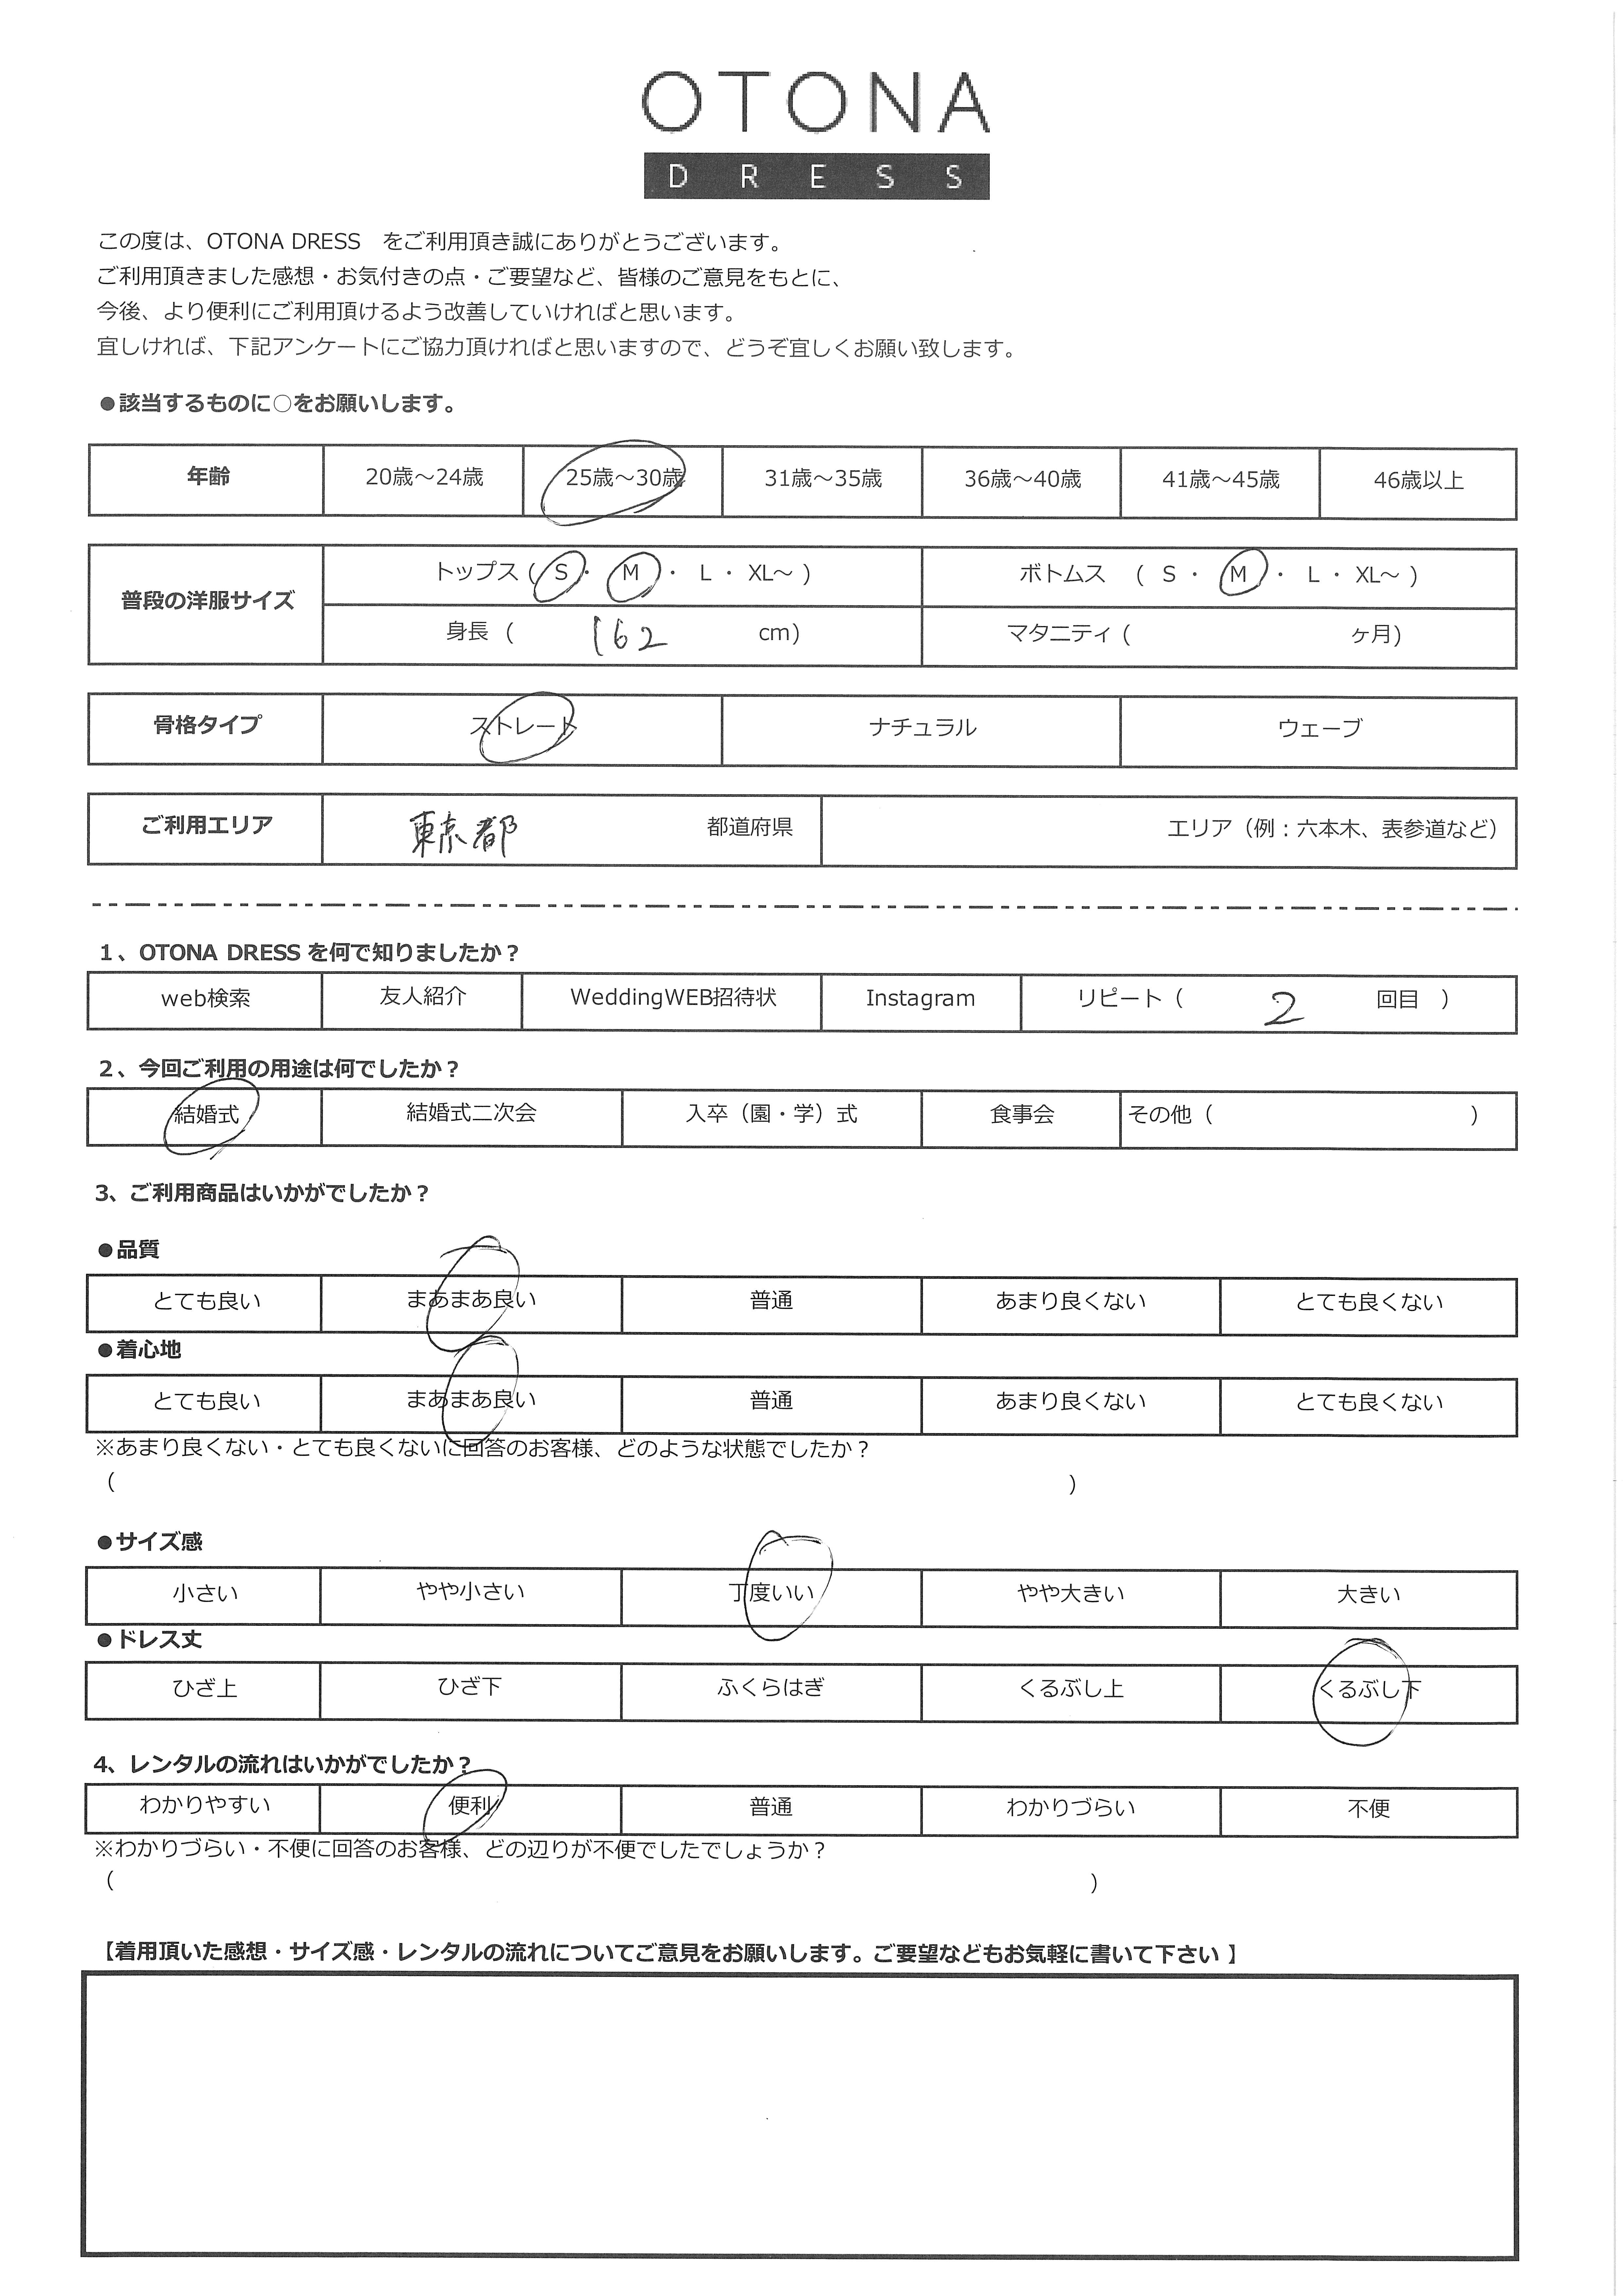 OTONA
DRESS
この度は、OTONA DRESS　をご利用頂き誠にありがとうございます。
ご利用頂きました感想・お気付きの点・ご要望など、皆様のご意見をもとに、
今後、より便利にご利用頂けるよう改善していければと思います。
宜しければ、下記アンケートにご協力頂ければと思いますので、どうぞ宜しくお願い致します。
●該当するものに○をお願いします。
年齢 20歳～24歳 25歳～30歳 31歳～35歳 36歳～40歳 41歳～45歳 46歳以上
普段の洋服サイズ トップス ( S ・ M ・ L ・ XL～ ) ボトムス ( S ・ M ・ L ・ XL～ )
身長 ( 162 cm) マタニティ ( ヶ月)
骨格タイプ ストレート ナチュラル ウェーブ
ご利用エリア 東京都 都道府県 エリア（例：六本木、表参道など）
1、OTONA DRESS を何で知りましたか？
web検索 友人紹介 WeddingWEB招待状 Instagram リピート（ 2 回目 ）
2、今回ご利用の用途は何でしたか？
結婚式 結婚式二次会 入卒（園・学）式 食事会 その他（ ）
3、ご利用商品はいかがでしたか？
●品質
とても良い まあまあ良い 普通 あまり良くない とても良くない
●着心地
とても良い まあまあ良い 普通 あまり良くない とても良くない
※あまり良くない・とても良くないに回答のお客様、どのような状態でしたか？
（ ）
●サイズ感
小さい やや小さい 丁度いい やや大きい 大きい
●ドレス丈
ひざ上 ひざ下 ふくらはぎ くるぶし上 くるぶし下
4、レンタルの流れはいかがでしたか？
わかりやすい 便利 普通 わかりづらい 不便
※わかりづらい・不便に回答のお客様、どの辺りが不便でしたでしょうか？
（ ）
【着用頂いた感想・サイズ感・レンタルの流れについてご意見をお願いします。ご要望などもお気軽に書いて下さい 】